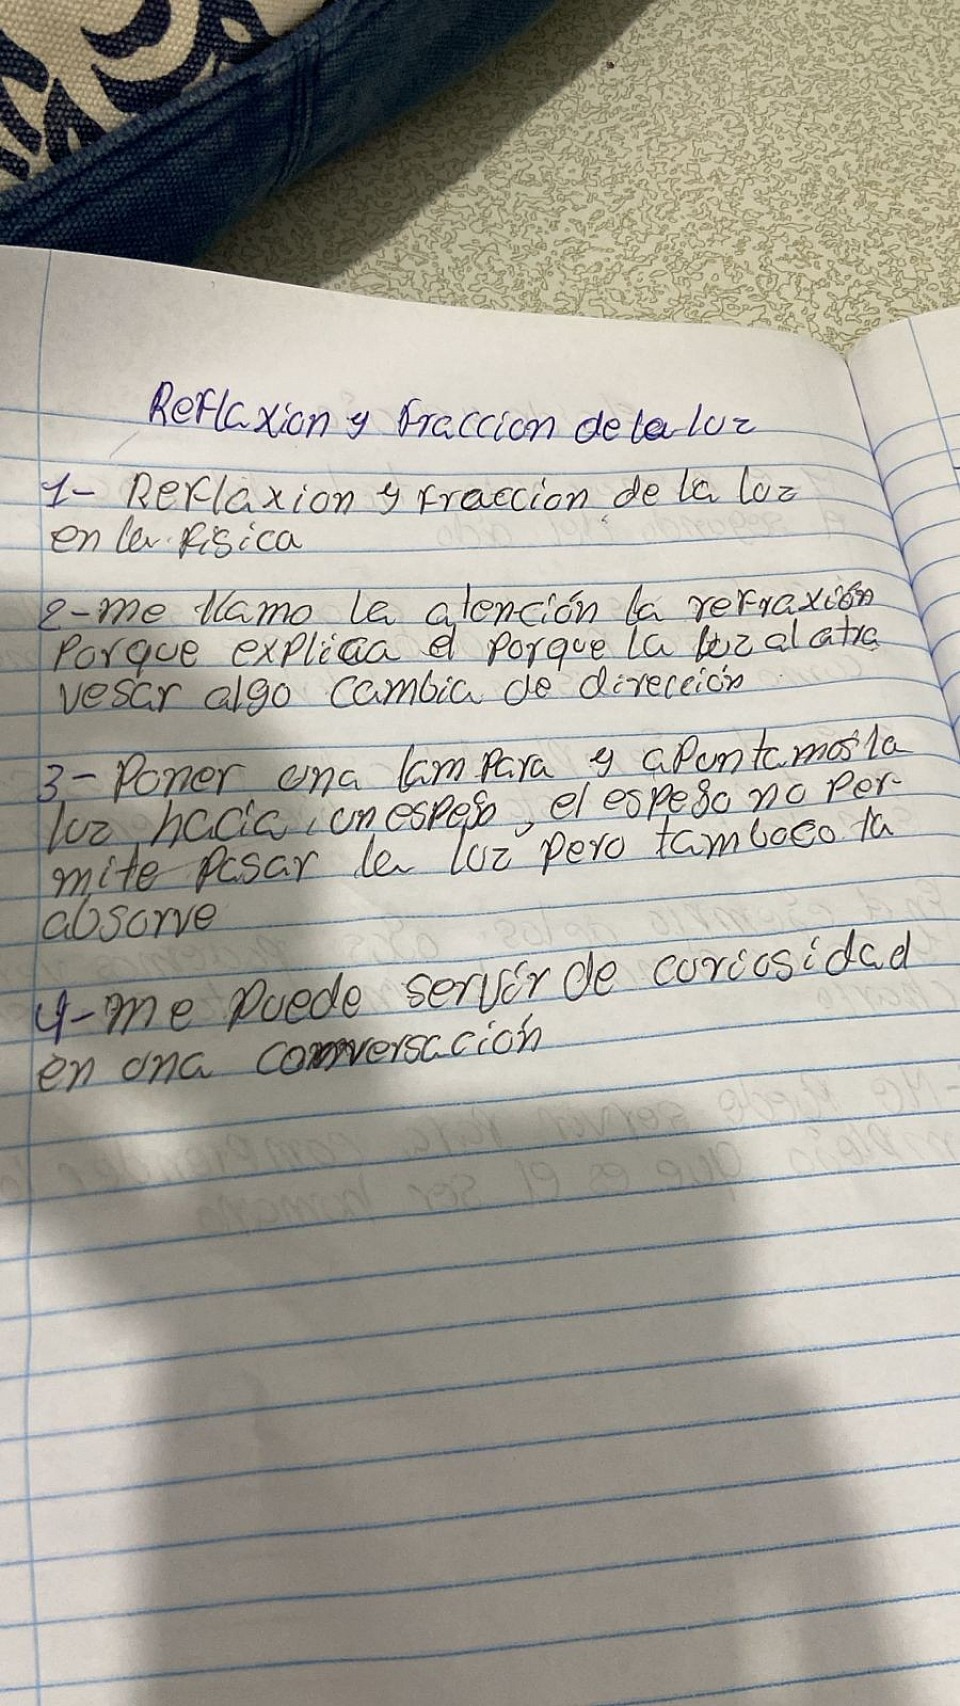 Reflaxion y fraccion de la luz
1- Reflaxion y fraccion de la luz
en la fisica
2-me llamo la atención la refraxión
Porque explica el porque la luz al atra
vesar algo cambia de dirección
3- Poner una lampara y apuntamos la
luz hacia un espejo, el espejo no per-
mite pasar la luz pero tampoco la
absorve
4-me puede servir de curiosidad
en una conversación